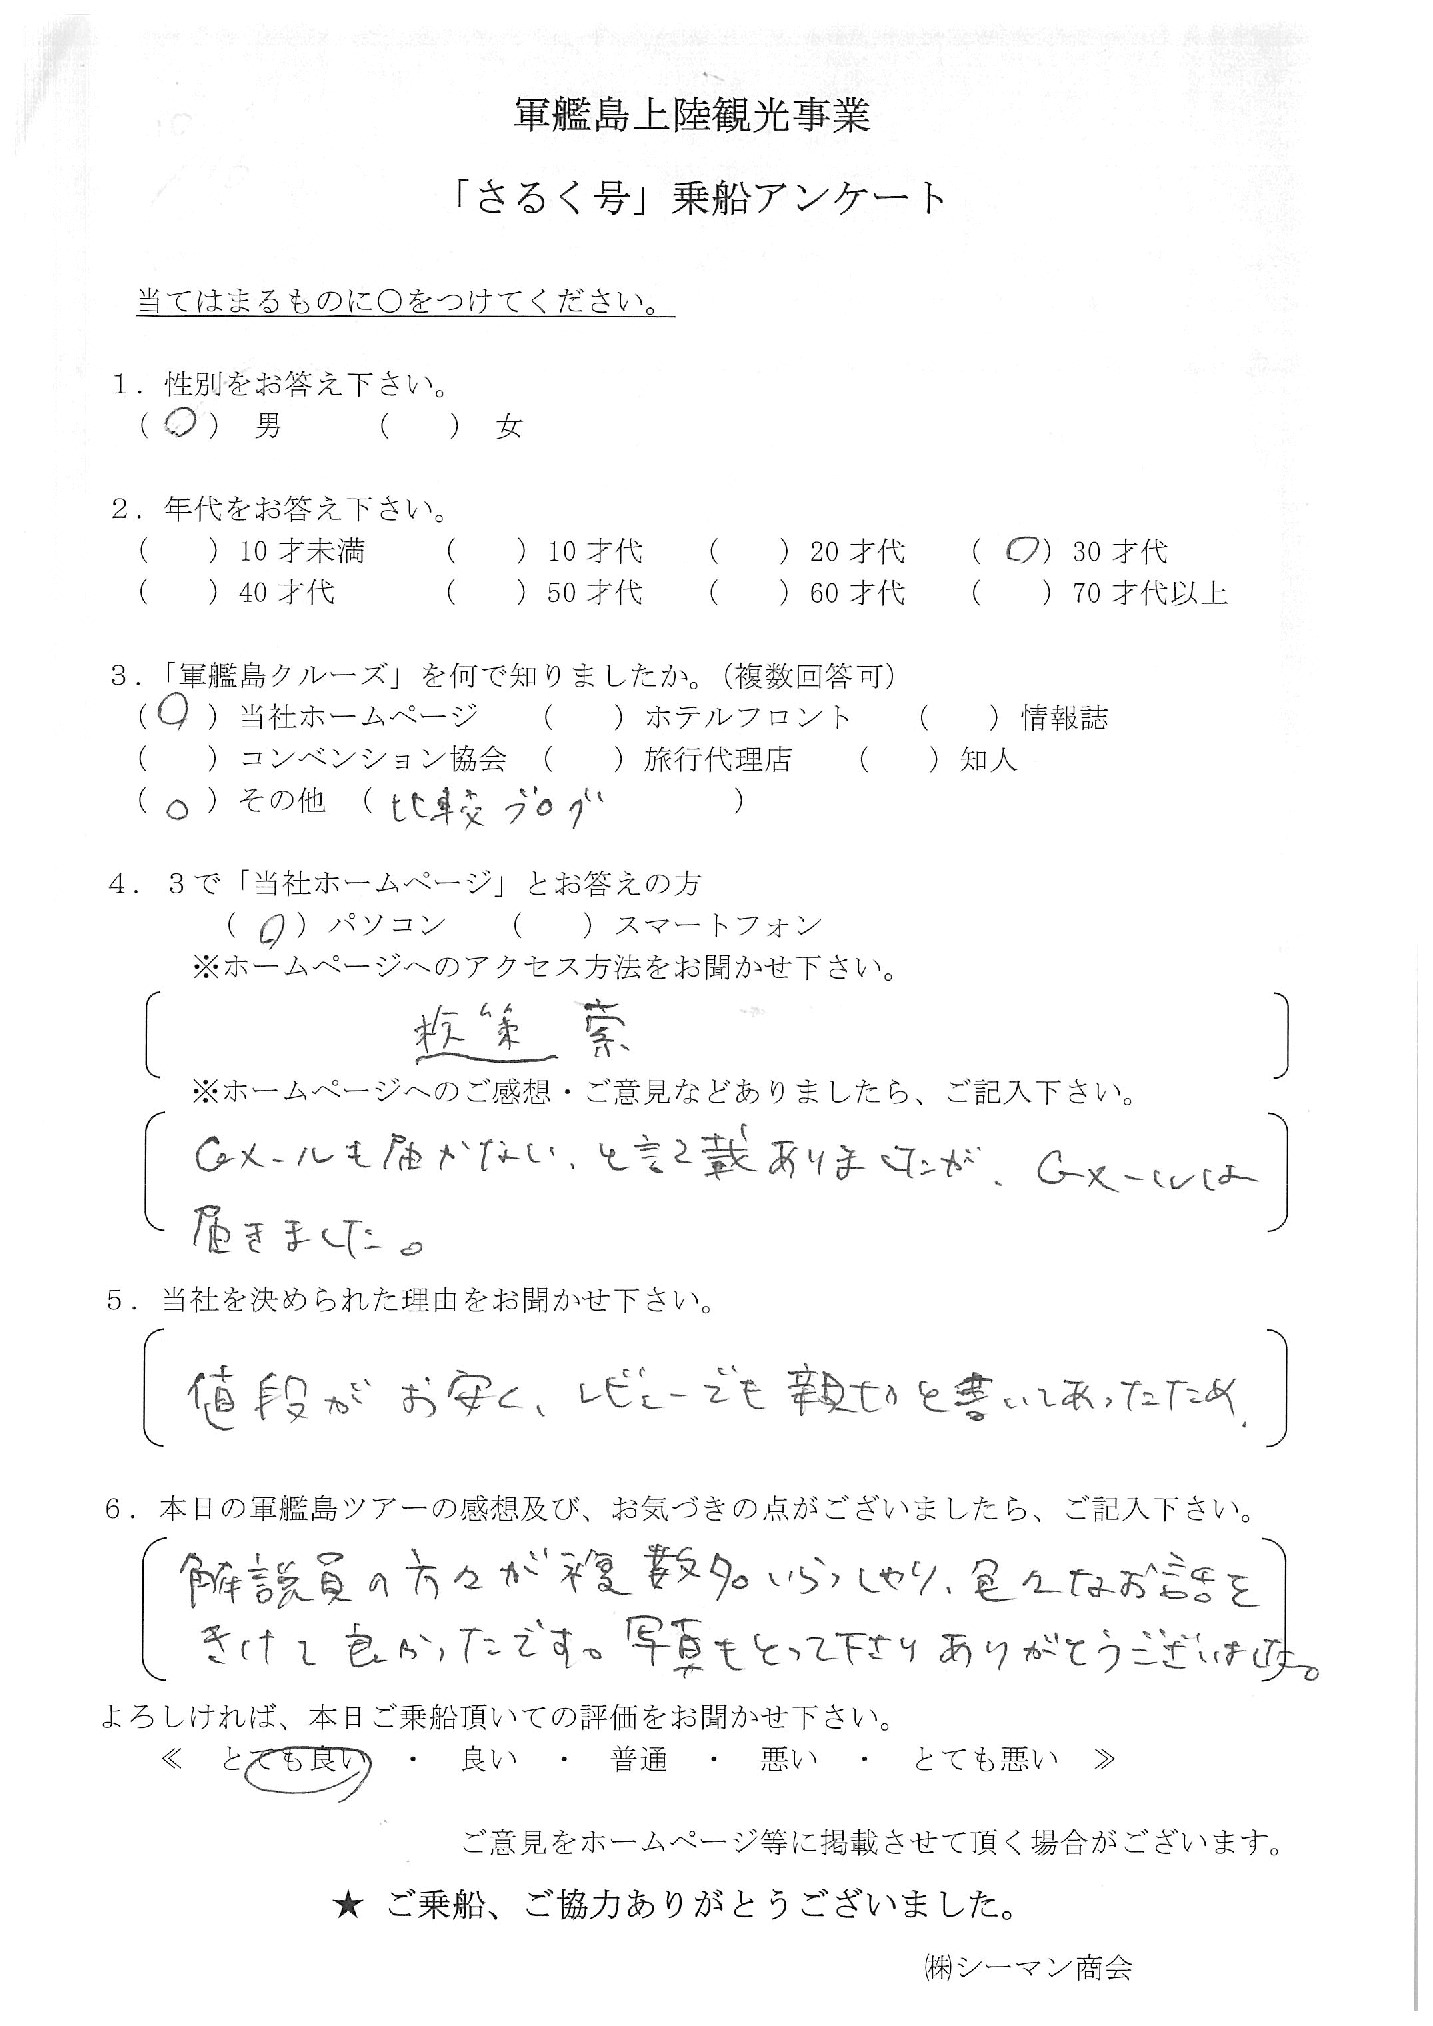 軍艦島上陸観光事業
「さるく号」乗船アンケート
当てはまるものに〇をつけてください。
１．性別をお答え下さい。
（ 〇 ） 男 （ ） 女
２．年代をお答え下さい。
（ ）10 才未満 （ ）10 才代 （ ）20 才代 （ 〇 ）30 才代
（ ）40 才代 （ ）50 才代 （ ）60 才代 （ ）70 才代以上
３．「軍艦島クルーズ」を何で知りましたか。（複数回答可）
（ 〇 ）当社ホームページ （ ）ホテルフロント （ ）情報誌
（ ）コンベンション協会 （ ）旅行代理店 （ ）知人
（ 〇 ）その他 （ 比較ブログ ）
４．３で「当社ホームページ」とお答えの方
（ 〇 ）パソコン （ ）スマートフォン
※ホームページへのアクセス方法をお聞かせ下さい。
検策 索
※ホームページへのご感想・ご意見などありましたら、ご記入下さい。
Gメールも届かない、と記載ありましたが、Gメールは
届きました。
５．当社を決められた理由をお聞かせ下さい。
値段がお安く、レビューでも親切と書いてあったため、
６．本日の軍艦島ツアーの感想及び、お気づきの点がございましたら、ご記入下さい。
解説員の方々が複数名いらっしゃり、色々なお話を
きけて良かったです。写真もとって下さりありがとうございました。
よろしければ、本日ご乗船頂いての評価をお聞かせ下さい。
≪ とても良い ・ 良い ・ 普通 ・ 悪い ・ とても悪い ≫
ご意見をホームページ等に掲載させて頂く場合がございます。
★ ご乗船、ご協力ありがとうございました。
㈱シーマン商会